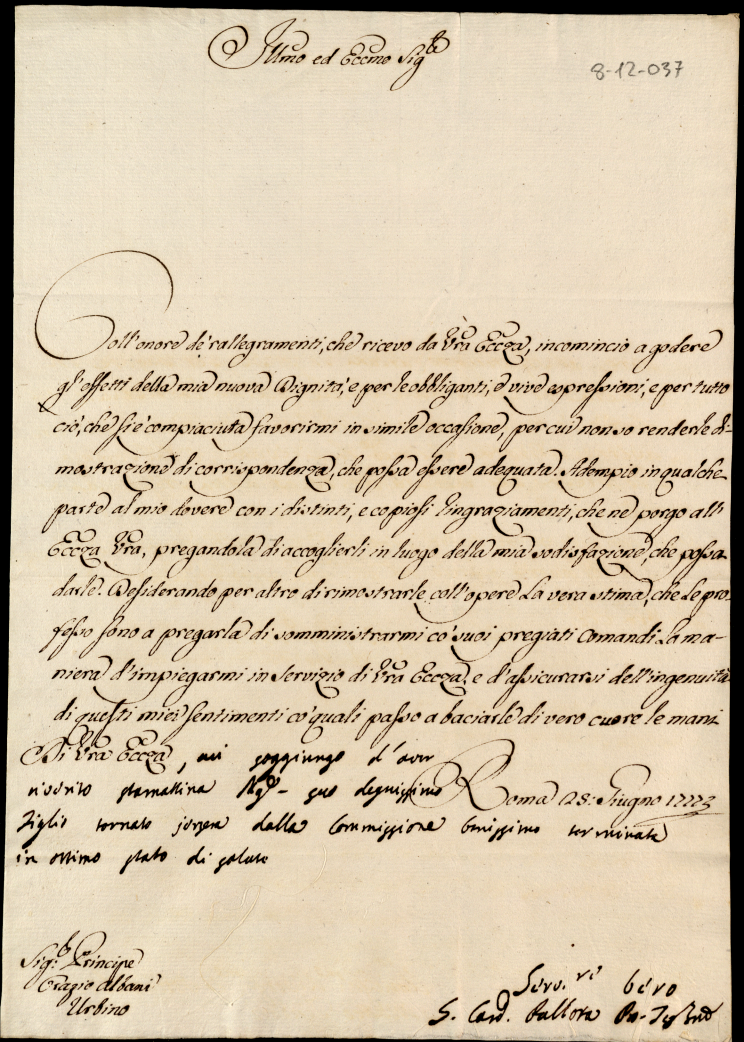 Illmo ed Eccmo Sigre
8-12-037
Coll'onore de' rallegramenti, che ricevo da Vra Eccza, incomincio a godere
gl'effetti della mia nuova Dignità, e per le obbliganti, e vive espressioni, e per tutto
ciò, che si è compiaciuta favorirmi in simile occasione, per cui non so renderle di-
mostrazione di corrispondenza, che possa essere adequata. Adempio in qualche
parte al mio dovere con i distinti, e copiosi ringraziamenti, che ne porgo all'
Eccza Vra, pregandola di accoglierli in luogo della mia sodisfazione, che possa
darle. Desiderando per altro di rimostrarle coll'opere la vera stima, che Le pro-
fesso sono a pregarla di somministrarmi co' suoi pregiati Comandi La ma-
niera d'impiegarmi in servizio di Vra Eccza, e d'assicurarsi dell'ingenuità
di questi miei sentimenti co' quali passo a baciarle di vero cuore le mani
Di Vra Eccza, mi soggiungo d'aver
riverito stamattina Mgr suo degnissimo
Roma 28: Giugno 1777
Figlio tornato jersera dalla Commissione benissimo terminata
in ottimo stato di salute
Sigre Principe
Orazio Albani
Urbino
Servre vero
G. Card. Pallotta